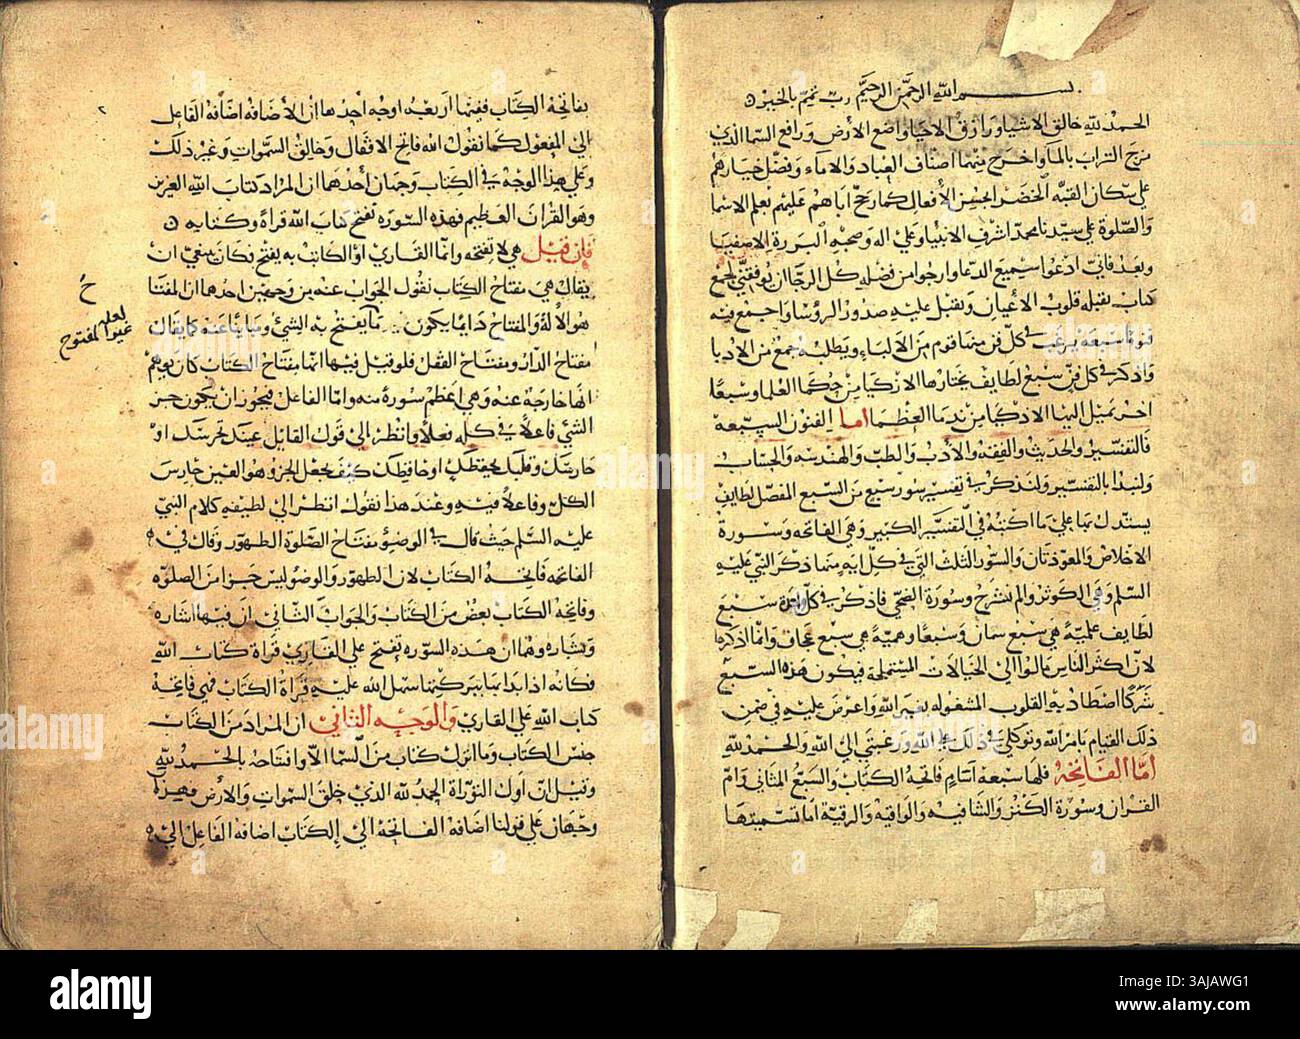 بســـم الله الرحمن الرحيم رب تمم بالخير
الحمد لله خالق الاشيا ورازق الاحيا واضع الأرض ورافع السما الذي
مزج التراب بالما واخرج منهما اصناف العباد والاماء وفضل خيارهم
على سكان القبة الخضر الحسن الأفعال كما رجح اباهم عليهم بعلم الاسما
والصلوة على سيدنا محمد اشرف الانبيا وعلى اله وصحبه البررة الاصفيا
وبعد فاني ادعوا سميع الدعا وارجوا من فضله كل الرجا ان يوفقني لجمع
كتاب يقبله قلوب الأعيان ويقبل عليه صدور الرؤسا واجمع فيه
فنونا سبعة يرغب في كل فن منها قوم من الالباء ويطلبه جمع من الادبا
واذكر في كل فن سبع لطايف يختارها الازكيا من حكما العلما وسبعا
اخر تميل اليها الاذكيا من ندما العظما اما الفنون السبعة
فالتفسير والحديث والفقه والأدب والطب والهندسه والحساب
ولنبدا بالتفسير ولنذكر في تفسير سور سبع من السبع المفصل لطايف
يستدل بها على ما اكتبه في التفسير الكبير وهي الفاتحه وسورة
الاخلاص والمعوذتان والسور الثلث التي في كل ايه منها ذكر النبي عليه
السلم وهي الكوثر والم نشرح وسورة الضحى فاذكر في كل سورة سبع
لطايف علمية هي سبع سمان وسبعا وهمية هي سبع عجاف وانما اذكرها
لان اكثر الناس مالوا الى الخيالات المستملحة فيكون هذه السبع
شركا اصطاد به القلوب المشغوله بغير الله واعرض عليه في ضمن
ذلك القيام بامر الله وتوكلي في ذلك على الله ورغبتي الى الله والحمد لله
اما الفاتحة فلها سبعة اسام فاتحة الكتاب والسبع المثاني وام
القران وسورة الكنز والشافيه والواقيه والرقية اما تسميتها
بفاتحة الكتاب ففيها اربعه اوجه احدها ان الاضافه اضافة الفاعل
الى المفعول كما نقول الله فاتح الاقفال وخالق السموات وغير ذلك
وعلى هذا الوجه في الكتاب وجهان أحدهما ان المراد كتاب الله العزيز
وهو القران العظيم فهذه السوره تفتح كتاب الله قراة وكتابه
فان قيل هي لا تفتحه وانما القاري او الكاتب به يفتح فكان ينبغي ان
يقال هي مفتاح الكتاب نقول الجواب عنه من وجهين احدهما ان المفتاح
هو الالة والمفتاح دايما يكون ما يفتح به الشئ ومباينا عنه كما يقال
مفتاح الدار ومفتاح القفل فلو قيل فيها انها مفتاح الكتاب كان يوهم
انها خارجة عنه وهي اعظم سورة منه واما الفاعل فيجوز ان يكون جز
الشئ فاعلا في كله فعلا وانظر الى قول القايل عينك تحرسك او
حارسك وقلبك يحفظك او حافظك كيف جعل الجزو هو العين حارس
الكل وفاعلا فيه وعند هذا نقول انظر الى لطيفه كلام النبي
عليه السلم حيث قال في الوضوء مفتاح الصلوة الطهور وقال في
الفاتحه فاتحة الكتاب لان الطهور والوضو ليس جزوا من الصلوه
وفاتحة الكتاب بعض من الكتاب والجواب الثاني ان فيها اشاره
وبشاره وهما ان هذه السوره تفتح على القاري قراة كتاب الله
فكانه اذا بدا بها ببركتها سهل الله عليه قراة الكتاب فهي فاتحة
كتاب الله على القاري والوجه الثاني ان المراد من الكتاب
جنس الكتاب وما انزل كتاب من السما الا وافتتاحه بالحمد لله
وقيل ان اول التوراة الحمد لله الذي خلق السموات والأرض فهذا
وجهان على قولنا اضافة الفاتحة الى الكتاب اضافه الفاعل الى
ح
لعله
غير المفتوح
alamy
Image ID: 3AJAWG1
www.alamy.com